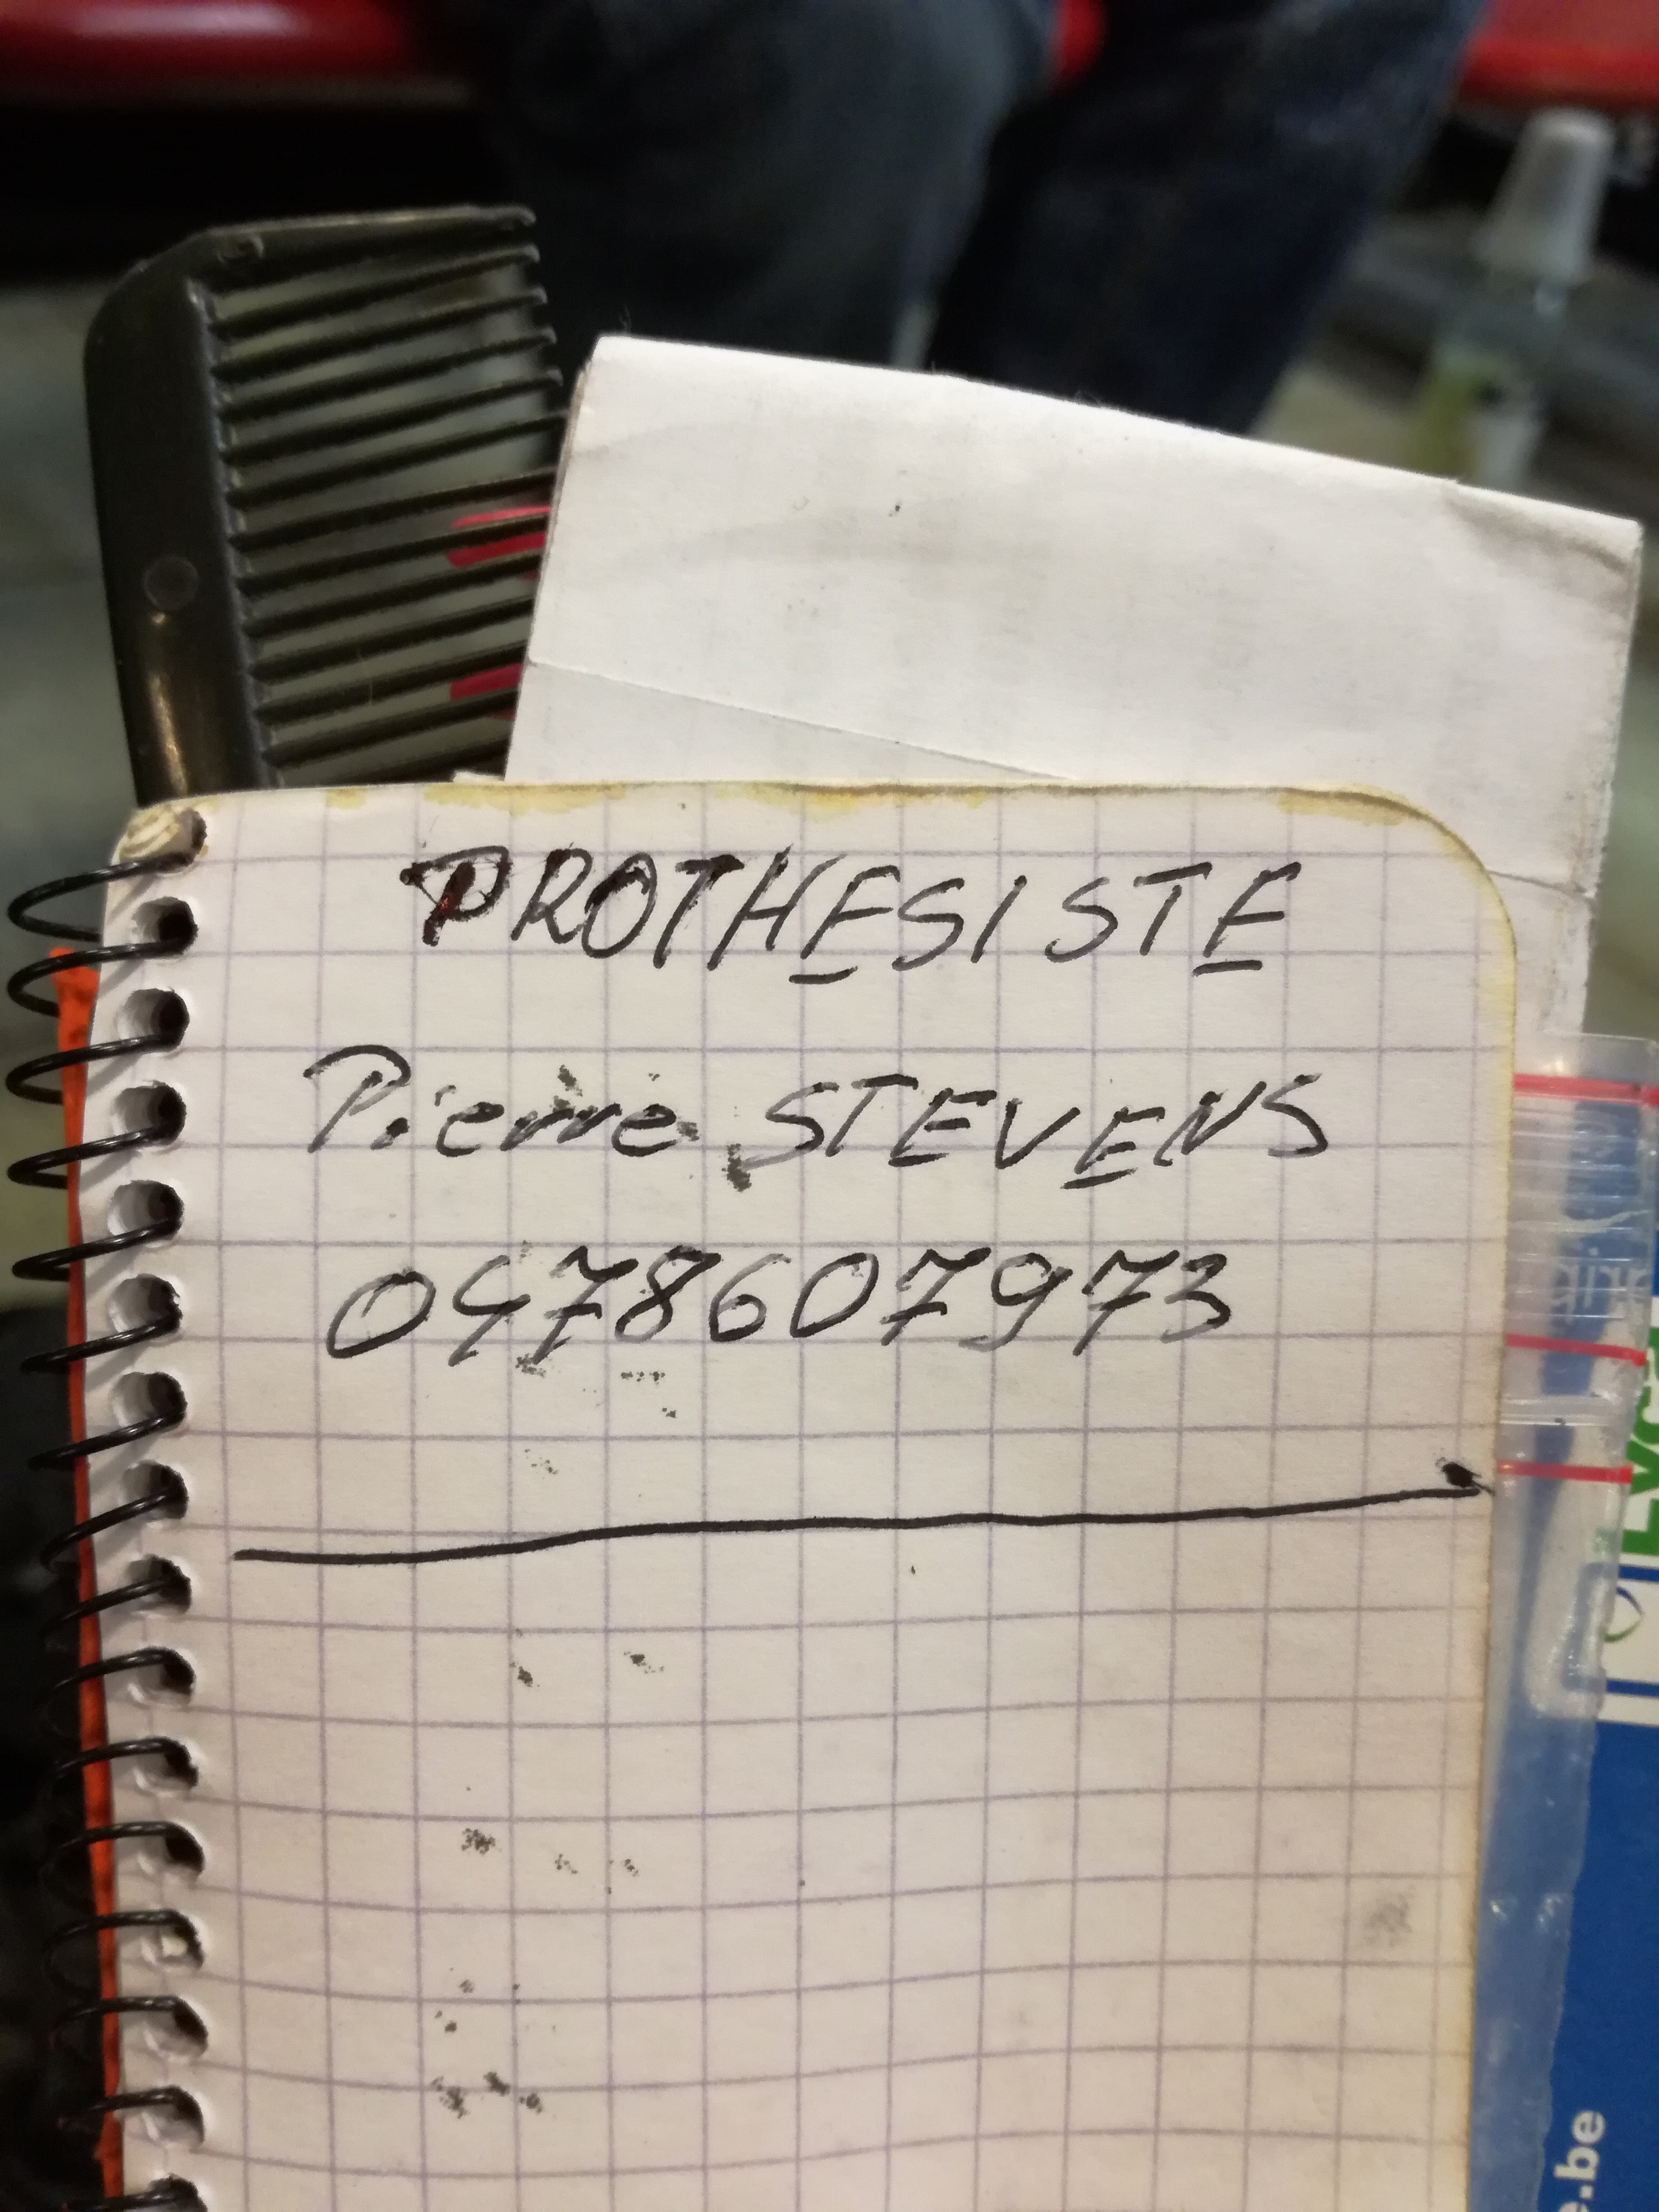 PROTHESISTE
Pierre STEVENS
0478607973
e.be